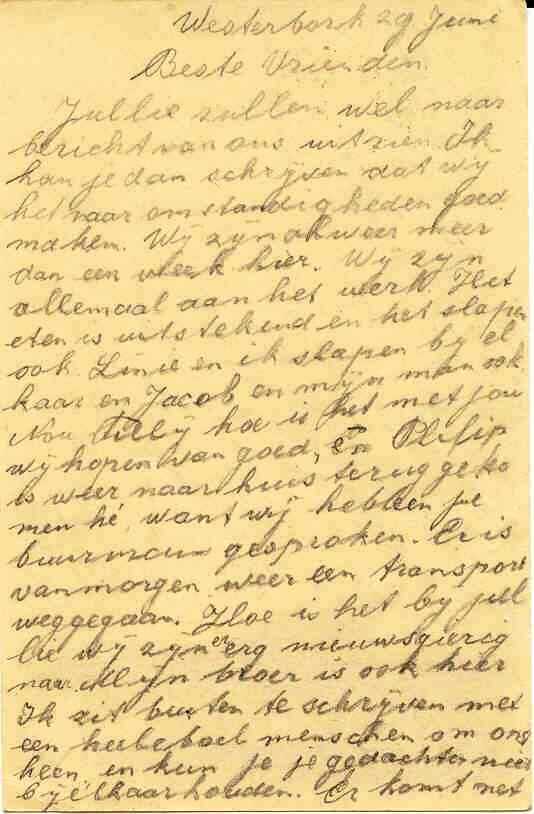 Westerbork 29 Juni
Beste Vrienden.
Jullie zullen wel naar
bericht van ons uitzien. Ik
kan je dan schrijven dat wij
het naar omstandigheden goed
maken. Wij zijn al weer meer
dan een week hier. Wij zijn
allemaal aan het werk. Het
eten is uitstekend en het slapen
ook. Linie en ik slapen bij el
kaar en Jacob en mijn man ook.
Nou Tilly hoe is het met jou
wij hopen van goed, en Philip
is weer naar huis terug geko
men hé, want wij hebben je
buurman gesproken. Er is
vanmorgen weer een transport
weggegaan. Hoe is het bij jul
lie wij zijn er erg nieuwsgierig
naar. Mijn broer is ook hier
Ik zit buiten te schrijven met
een heeleboel menschen om ons
heen en kun je je gedachten niet
bijelkaar houden. Er komt net